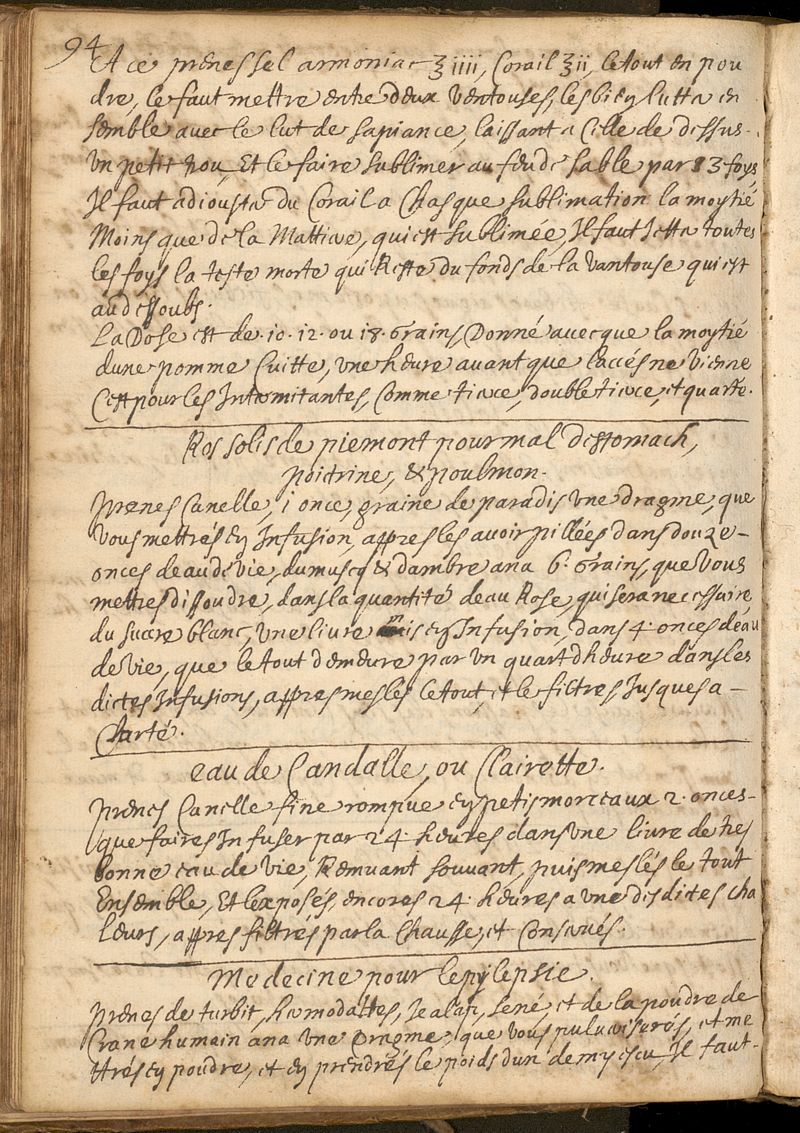 94
A ce prenes sel armoniac ʒ iiii, Corail ʒ ii, le tout en pou
dre, le faut mettre entre deux Ventouses, les bien lutter en
semble avec le lut de sapiance, laissant a Celle de dessus
Un petit trou, Et le faire sublimer au feu de sable par 3 foys
Il faut adiouster du Corail a Chasque sublimation la moytié
Moins que de la Mattiere, qui est sublimée, Il faut Jetter toutes
les foys la teste morte qui Reste du fonds de la Vantouse qui est
au dessoubs.
La Dose est de 10. 12. ou 18. Grains, Donné avecque la moytié
dune pomme Cuitte, une heure avant que laccés ne Vienne
Cest pour les Intermitantes, Comme tierce, double tierce, et quarte.
Ros solis de piemont pour mal destomach,
poitrine, & poulmon.
prenes Canelle, i once, graine de paradis Une dragme, que
Vous mettrés en Infusion, appres les avoir pillées dans douze
onces deau de vie, du musq & dambre ana 6. Grains, que Vous
mettres dissoudre, dans la quantité deau Rose, qui sera necessaire
du sucre blanc, Une livre mis en Infusion, dans 4. onces deau
de vie, que le tout demeure par Un quart dheure dans les
dictes Infusions, appres mesles le tout, et le filtres Jusques a
Clarté.
eau de Candalle, ou Clairette.
prenes Canelle fine rompue en petis morceaux 2. onces
que faires Infuser par 24. heures dans Une livre de tres
bonne eau de Vie, Remuant souvant, puis meslés le tout
Ensemble, Et lexposés encores 24. heures a Une des dictes cha
leurs, appres filtres par la Chausse, et Conservés.
Medecine pour lepylepsie.
prenes de turbit, hermodattes, Jealap, sené, et de la poudre de
Crane humain ana Une Dragme, que Vous pulveriserés, et me
ttrés en poudre, et en prendrés le poids dun demy escu, Il faut